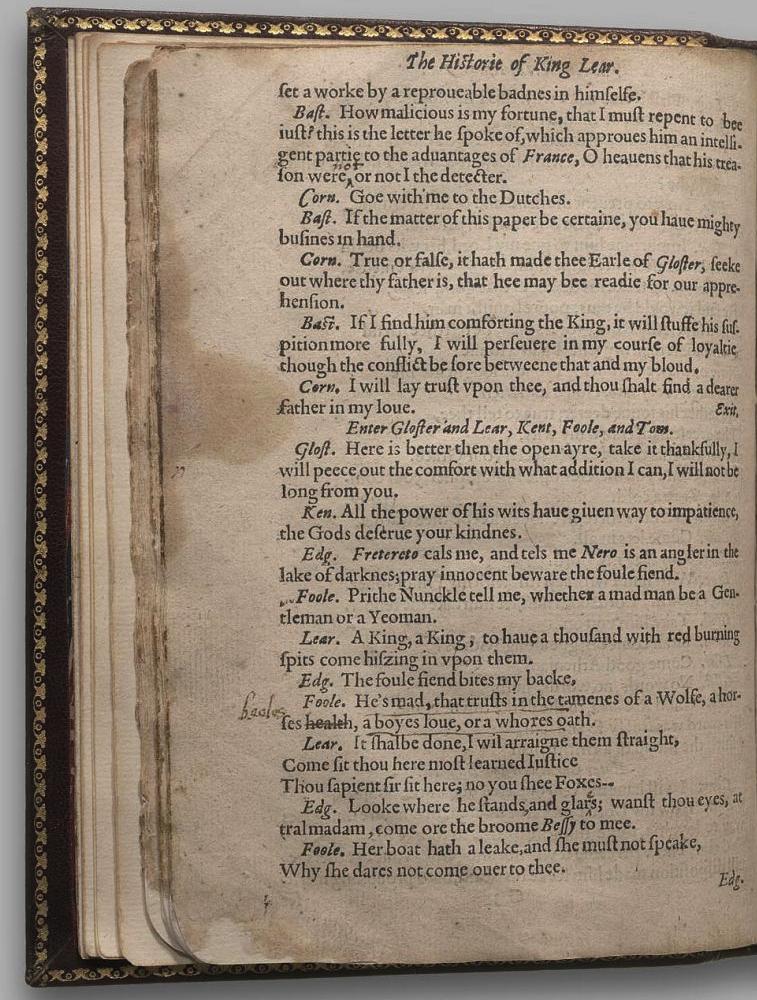 The Historie of King Lear.
set a worke by a reproueable badnes in himselfe.
Bast. How malicious is my fortune, that I must repent to bee
iust? this is the letter he spoke of, which approues him an intelli-
gent partie to the aduantages of France, O heauens that his trea-
not
son were, or not I the detecter.
Corn. Goe with me to the Dutches.
Bast. If the matter of this paper be certaine, you haue mighty
busines in hand.
Corn. True or false, it hath made thee Earle of Gloster, seeke
out where thy father is, that hee may bee readie for our appre-
hension.
Bast. If I find him comforting the King, it will stuffe his sus-
pition more fully, I will perseuere in my course of loyaltie
though the conflict be sore betweene that and my bloud.
Corn. I will lay trust vpon thee, and thou shalt find a dearer
father in my loue. Exit.
Enter Gloster and Lear, Kent, Foole, and Tom.
Glost. Here is better then the open ayre, take it thankfully, I
will peece out the comfort with what addition I can, I will not be
long from you.
Ken. All the power of his wits haue giuen way to impatience,
the Gods deserue your kindnes.
Edg. Fretereto cals me, and tels me Nero is an angler in the
lake of darknes; pray innocent beware the foule fiend.
Foole. Prithe Nunckle tell me, whether a mad man be a Gen-
tleman or a Yeoman.
Lear. A King, a King, to haue a thousand with red burning
spits come hiszing in vpon them.
Edg. The foule fiend bites my backe,
Foole. He's mad, that trusts in the tamenes of a Wolfe, a hor-
heeles
ses health, a boyes loue, or a whores oath.
Lear. It shalbe done, I wil arraigne them straight,
Come sit thou here most learned Iustice
Thou sapient sir sit here; no you shee Foxes--
Edg. Looke where he stands, and glars; wanst thou eyes, at
tral madam, come ore the broome Bessy to mee.
Foole. Her boat hath a leake, and she must not speake,
Why she dares not come ouer to thee.
Edg.